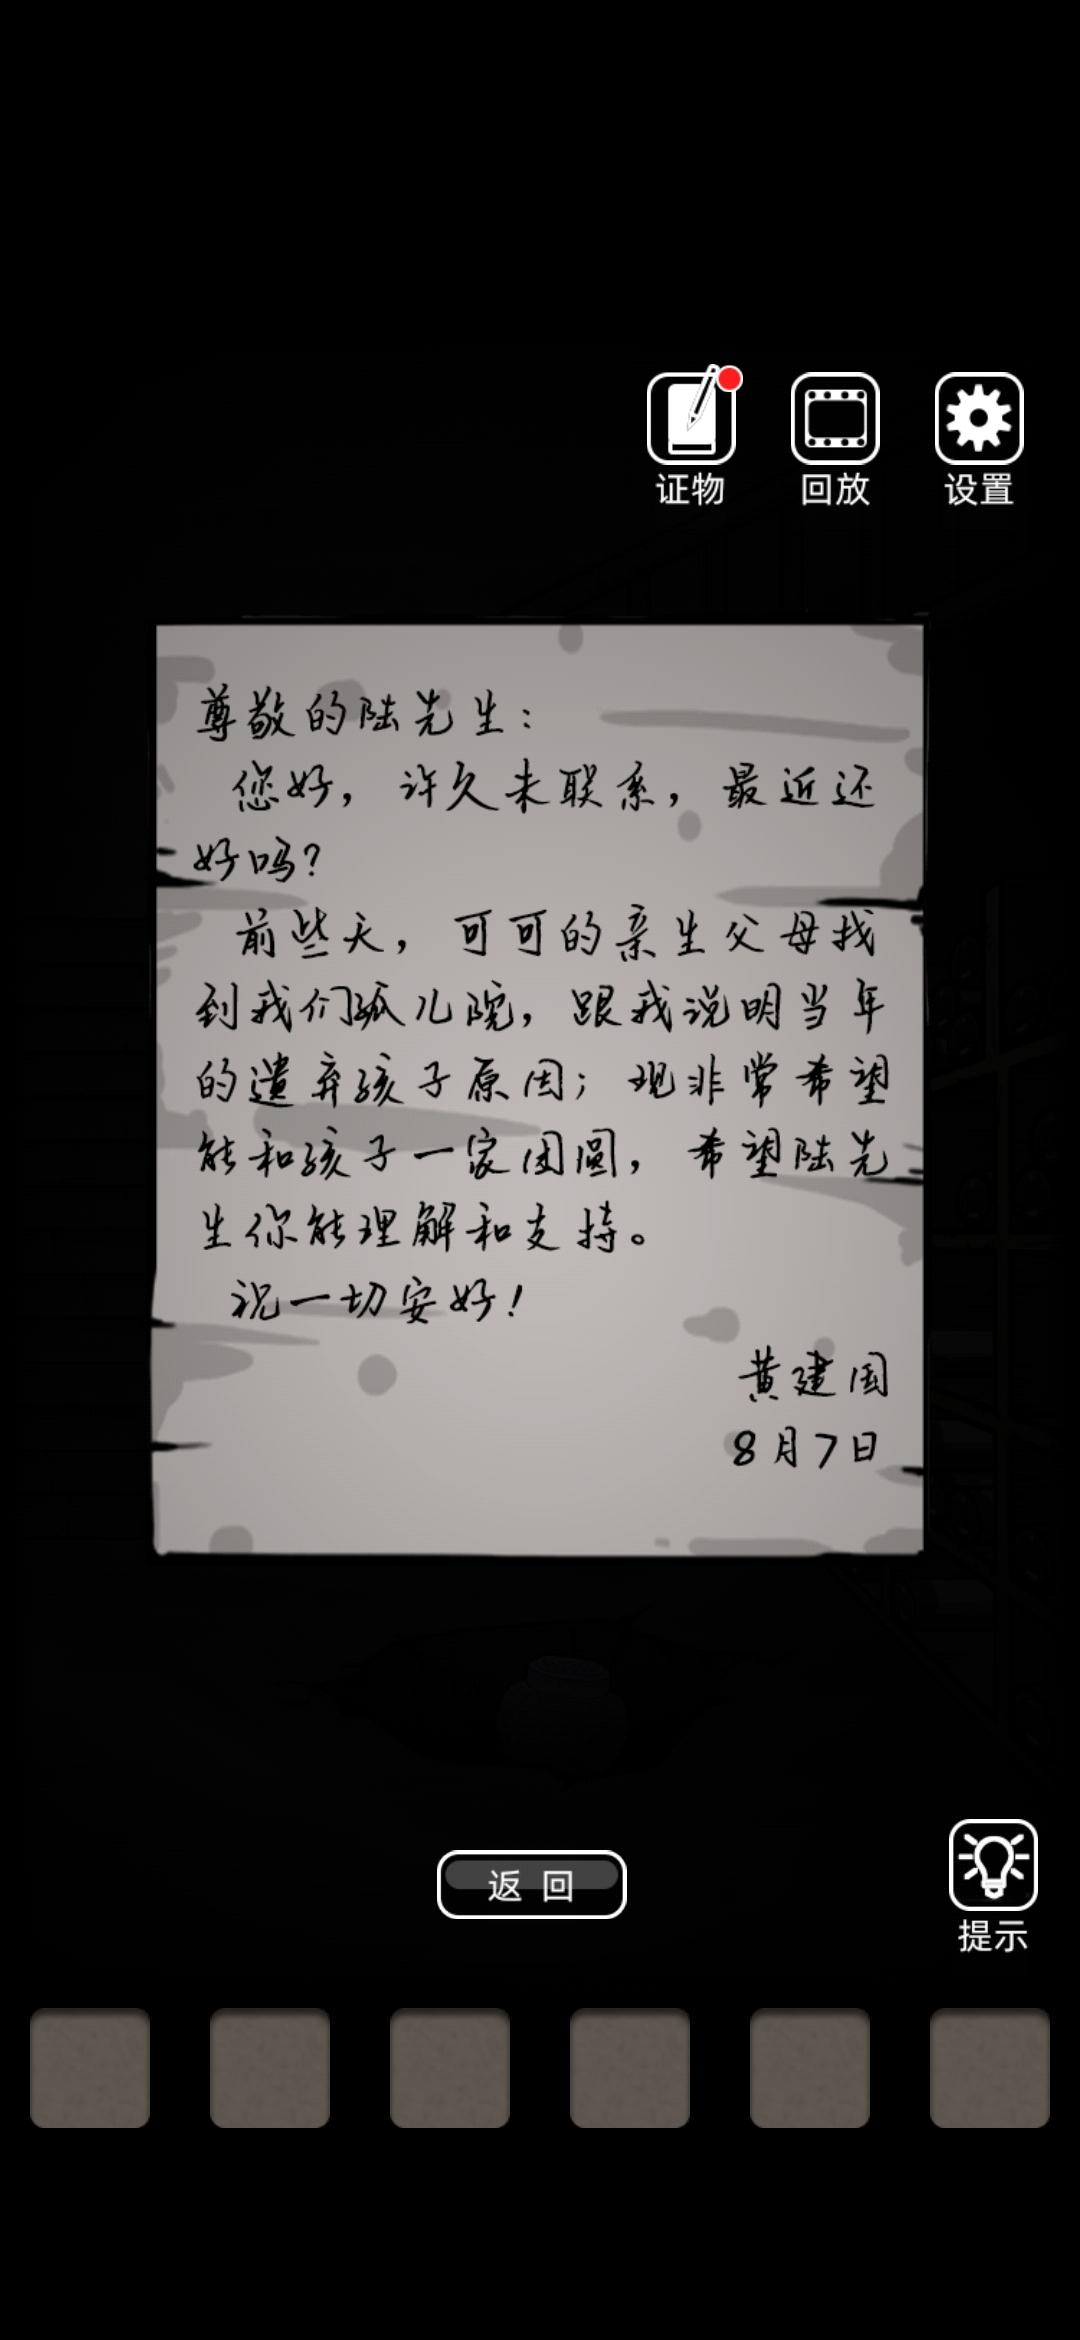 证物 回放 设置
尊敬的陆先生：
您好，许久未联系，最近还
好吗？
前些天，可可的亲生父母找
到我们孤儿院，跟我说明当年
的遗弃孩子原因；现非常希望
能和孩子一家团圆，希望陆先
生你能理解和支持。
祝一切安好！
黄建国
8月7日
返回
提示